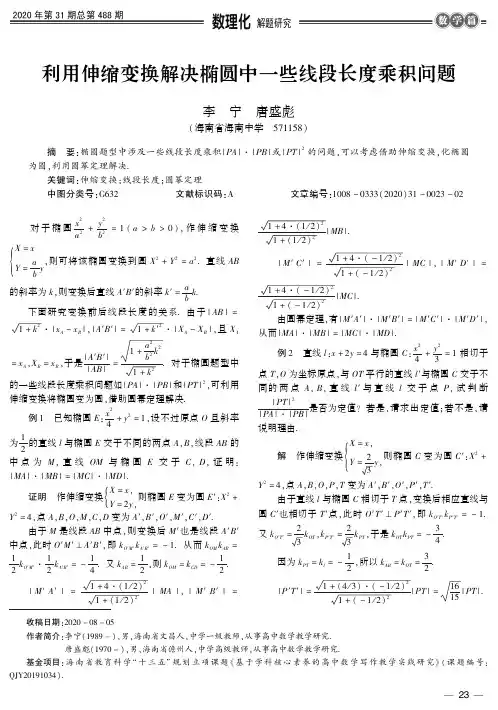 2020年第31期总第488期
数理化 解题研究
数学篇
利用伸缩变换解决椭圆中一些线段长度乘积问题
李 宁 唐盛彪
(海南省海南中学 571158)
摘 要:椭圆题型中涉及一些线段长度乘积|PA|·|PB|或|PT|²的问题,可以考虑借助伸缩变换,化椭圆
为圆,利用圆幂定理解决.
关键词:伸缩变换;线段长度;圆幂定理
中图分类号:G632 文献标识码:A 文章编号:1008-0333(2020)31-0023-02
对于椭圆x²/a²+y²/b²=1(a>b>0),作伸缩变换
{X=x
Y=a/b y,则可将该椭圆变换到圆X²+Y²=a². 直线AB
的斜率为k,则变换后直线A′B′的斜率k′=a/b k.
下面研究变换前后线段长度的关系. 由于|AB|=
√(1+k²)·|x_A-x_B|,|A′B′|=√(1+k′²)·|X_A-X_B|,且X_A
=x_A,X_B=x_B,于是|A′B′|/|AB|=√(1+a²/b² k²)/√(1+k²). 对于椭圆题型中
的一些线段长度乘积问题如|PA|·|PB|和|PT|²,可利用
伸缩变换将椭圆变为圆,借助圆幂定理解决.
例1 已知椭圆E:x²/4+y²=1,设不过原点O且斜率
为1/2的直线l与椭圆E交于不同的两点A,B,线段AB的
中点为M,直线OM与椭圆E交于C,D,证明:
|MA|·|MB|=|MC|·|MD|.
证明 作伸缩变换{X=x,
Y=2y,则椭圆E变为圆E′:X²+
Y²=4,点A,B,O,M,C,D变为A′,B′,O′,M′,C′,D′.
由于M是线段AB中点,则变换后M′也是线段A′B′
中点,此时O′M′⊥A′B′,即k_O′M′k_A′B′=-1. 从而k_OM k_AB=
1/2 k_O′M′·1/2 k_A′B′=-1/4. 又k_AB=1/2,则k_OM=k_CD=-1/2.
|M′A′|=√(1+4·(1/2)²)/√(1+(1/2)²)|MA|,|M′B′|=
√(1+4·(1/2)²)/√(1+(1/2)²)|MB|.
|M′C′|=√(1+4·(-1/2)²)/√(1+(-1/2)²)|MC|,|M′D′|=
√(1+4·(-1/2)²)/√(1+(-1/2)²)|MC|.
由圆幂定理,有|M′A′|·|M′B′|=|M′C′|·|M′D′|,
从而|MA|·|MB|=|MC|·|MD|.
例2 直线l:x+2y=4与椭圆C:x²/4+y²/3=1相切于
点T,O为坐标原点,与OT平行的直线l′与椭圆C交于不
同的两点A,B,直线l′与直线l交于点P,试判断
|PT|²/(|PA|·|PB|)是否为定值?若是,请求出定值;若不是,请
说明理由.
解 作伸缩变换{X=x,
Y=2/√3 y,则椭圆C变为圆C′:X²+
Y²=4,点A,B,O,P,T变为A′,B′,O′,P′,T′.
由于直线l与椭圆C相切于T点,变换后相应直线与
圆C′也相切于T′点,此时O′T′⊥P′T′,即k_O′T′k_P′T′=-1.
又k_O′T′=2/√3 k_OT,k_P′T′=2/√3 k_PT,于是k_OT k_PT=-3/4.
因为k_PT=k_l=-1/2,所以k_AB=k_OT=3/2.
|P′T′|=√(1+(4/3)·(-1/2)²)/√(1+(-1/2)²)|PT|=√(16/15)|PT|.
收稿日期:2020-08-05
作者简介:李宁(1989-),男,海南省文昌人,中学一级教师,从事高中数学教学研究.
唐盛彪(1970-),男,海南省儋州人,中学高级教师,从事高中数学教学研究.
基金项目:海南省教育科学“十三五”规划立项课题《基于学科核心素养的高中数学写作教学实践研究》(课题编号:
QJY20191034).
— 23 —